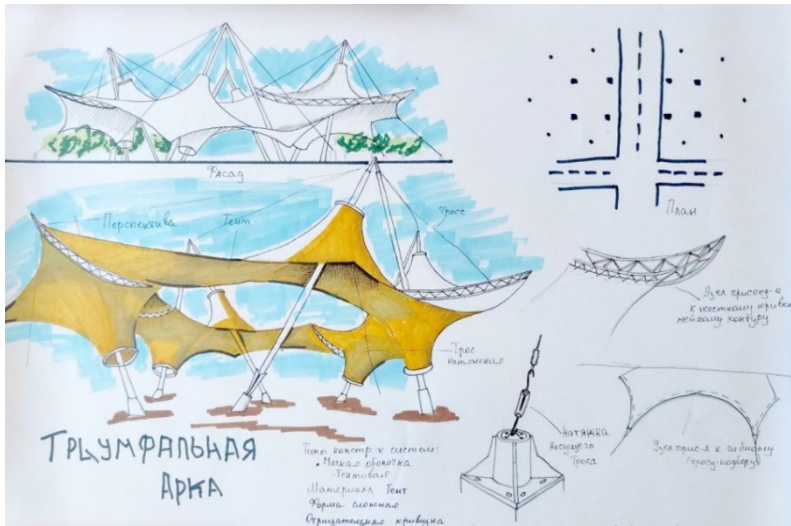 Фасад
План
Перспектива
Тент
Тросс
Узел присоед-а
к жесткому криво
нейному контуру
Трос
натяжения
Натяжка
несущего
Троса
Узел прис-я к гибкому
(тросу-подбору)
ТРИУМФАЛЬНАЯ
АРКА
Типы констр-х систем:
• Мягкая оболочка
-Тентовая
Материалы Тент
Форма сложная
Отрицательная кривизна